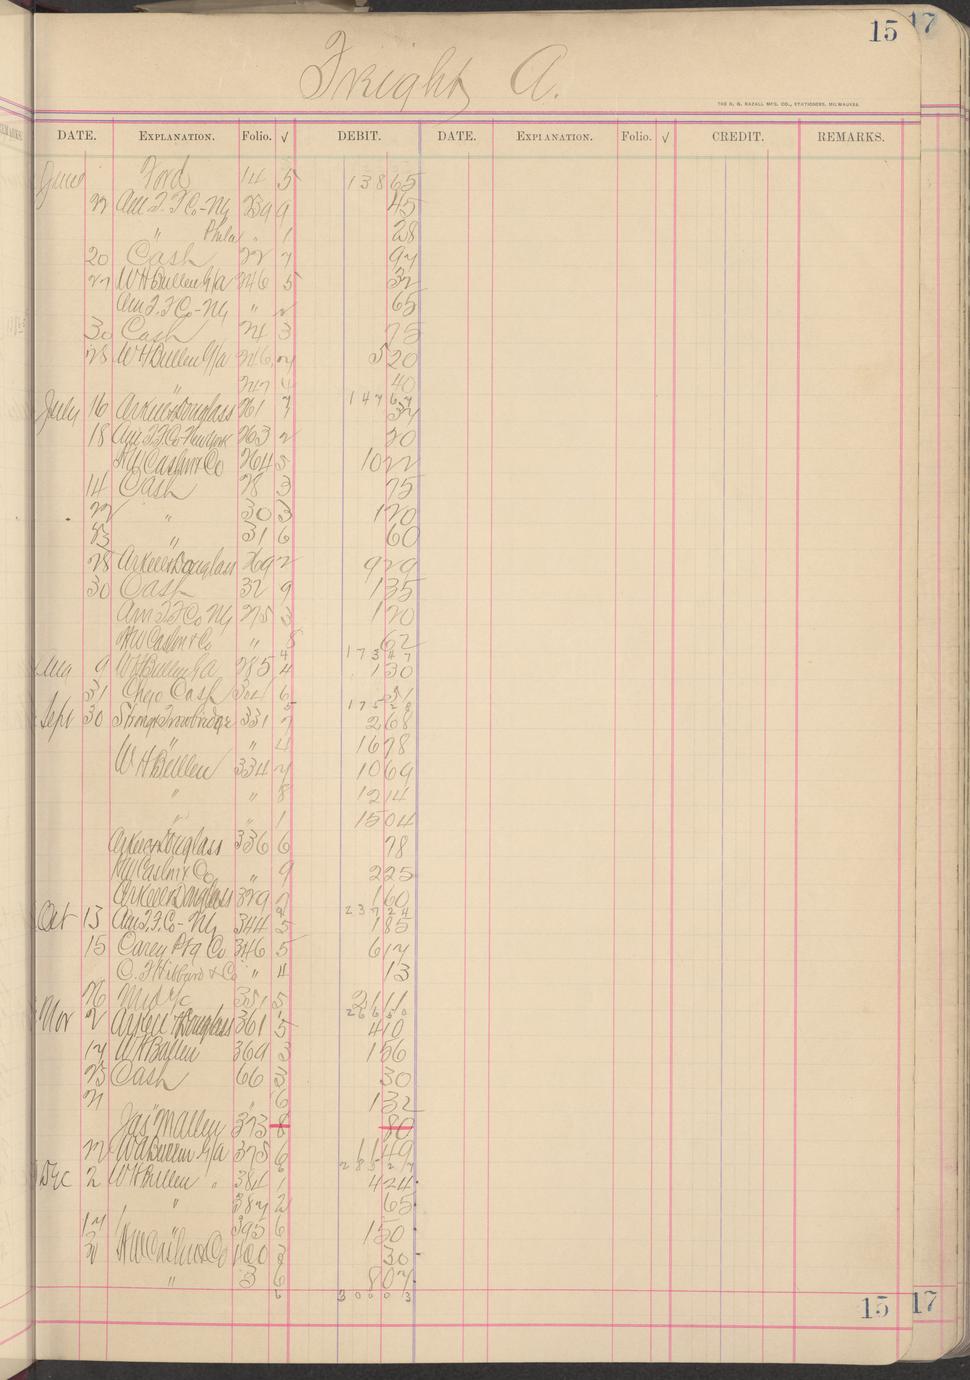 15 17
Freight A.
THE H. G. RAZALL MFG. CO., STATIONERS, MILWAUKEE
DATE. EXPLANATION. Folio. √ DEBIT. DATE. EXPLANATION. Folio. √ CREDIT. REMARKS.
June Ford 14 5 138 65
22 Am F. F Co - Ny 239 9 45
" Phila " 1 28
20 Cash 22 7 97
27 W H Bullen G/a 246 5 32
Am F. F Co - Ny " 2 65
30 Cash 24 3 75
28 W H Bullen G/a 246 5 20
" 247 4 40
147 67
July 16 Arkell & Douglass 261 7 37
18 Am F F Co - New York 263 2 20
H W Cashn & Co 264 5 10 22
14 Cash 28 3 75
22 " 30 3 1 20
23 " 31 6 60
28 Arkell & Douglass 269 2 9 29
30 Cash 32 9 1 35
Am F F Co Ny 275 3 1 20
H W Cashn & Co " 8 62
4 173 47
Aug 9 W H Bullen G/a 285 4 1 30
31 Cash 6 51
5 175 28
Sept 30 Strong & Trowbridge 331 7 2 68
" " 4 16 78
W H Bullen 334 7 10 69
" " 8 12 14
" " 1 15 04
Arkell & Douglass 336 6 78
H W Cashn & Co " 9 2 25
Arkell & Douglass 329 7 1 60
237 24
Oct 13 Am F. F. Co - Ny 344 5 1 85
15 Carey Ptg Co 346 5 6 17
C. F Hibbard & Co " 4 13
26 351 5 21 11
266 50
Nov 2 Arkell & Douglass 361 5 4 10
17 W H Bullen 369 3 1 56
23 Cash 66 3 30
21 " 6 1 32
Jas Mallen 373 8 80
22 W H Bullen G/a 375 6 11 49
6 285 27
Dec 2 W H Bullen " 384 1 4 24
" 387 2 65
17 " 395 6 1 50
H W Cashn & Co 400 3 30
" 3 6 8 07
6 300 03
15 17